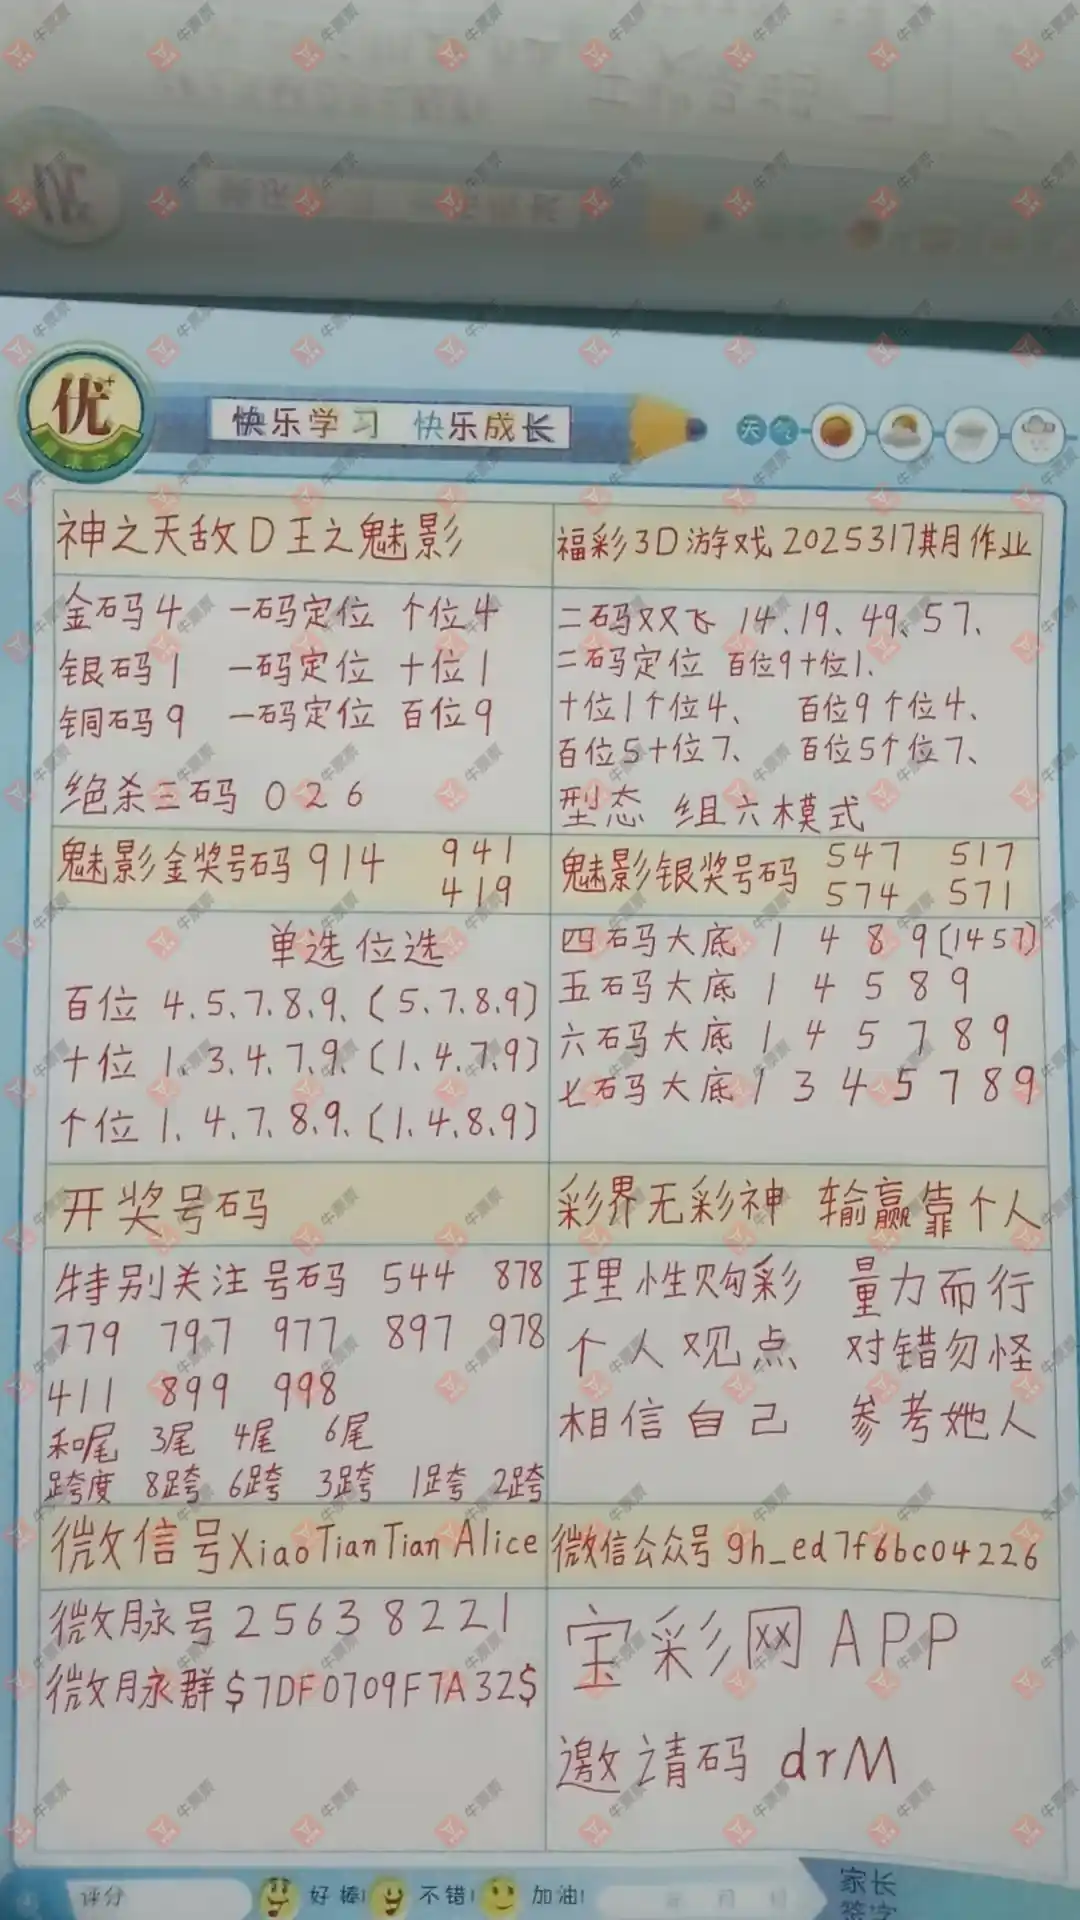 优+
快乐学习 快乐成长
天气
神之天敌D王之魅影
福彩3D游戏2025317期作业
金码4 一码定位 个位4
银码1 一码定位 十位1
铜码9 一码定位 百位9
绝杀三码 0 2 6
二码双飞 14、19、49、57、
二码定位 百位9十位1、
十位1个位4、 百位9个位4、
百位5十位7、 百位5个位7、
型态 组六模式
魅影金奖号码914 941
419
魅影银奖号码 547 517
574 571
单选位选
百位 4、5、7、8、9、(5、7、8、9)
十位 1、3、4、7、9、(1、4、7、9)
个位 1、4、7、8、9、(1、4、8、9)
四码大底 1 4 8 9(1457)
五码大底 1 4 5 8 9
六码大底 1 4 5 7 8 9
七码大底 1 3 4 5 7 8 9
开奖号码
彩界无彩神 输赢靠个人
特别关注号码 544 878
779 797 977 897 978
411 899 998
和尾 3尾 4尾 6尾
跨度 8跨 6跨 3跨 1跨 2跨
理性购彩 量力而行
个人观点 对错勿怪
相信自己 参考她人
微信号XiaoTianTianAlice
微信公众号gh_ed7f6bc04226
微脉号25638221
微脉群$7DF0709F7A32$
宝彩网APP
邀请码 drM
评分 好棒! 不错! 加油!
家长
签字
牛票票